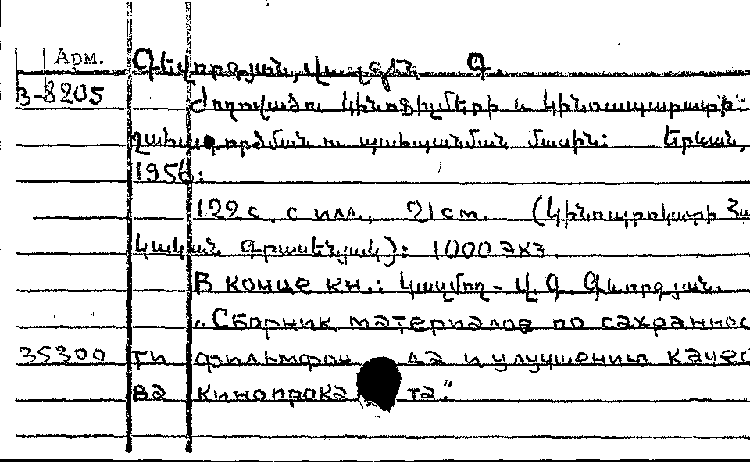 Арм. Գևորգյան, Վազգեն Գ.
З-8205 Ժողովածու կինոֆիլմերի և կինոապարատի-
պահպանման մասին: Երևան,
1956:
122 с. с илл., 21 cm. (Կինոպրոկատի Հա
կական գրասենյակ): 1000 экз.
В конце кн.: Կազմող - Վ. Գ. Գևորգյան.
„Сборник материалов по сохраннос
35300 ти фильмфонда и улучшению качес
ва кинопроката“.